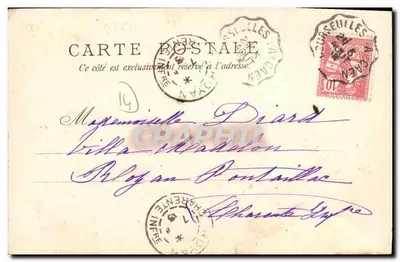 CARTE POSTALE
Ce côté est exclusivement réservé à l'adresse
COURSEULLES A CAEN
COURSEULLES A CAEN
10
ROYAN
CHARENTE INFRE
14
Mademoiselle Diard
Villa Madelon
Royan Pontaillac
Charente Infre
ROYAN
CHARENTE INFRE
CPAPHIL